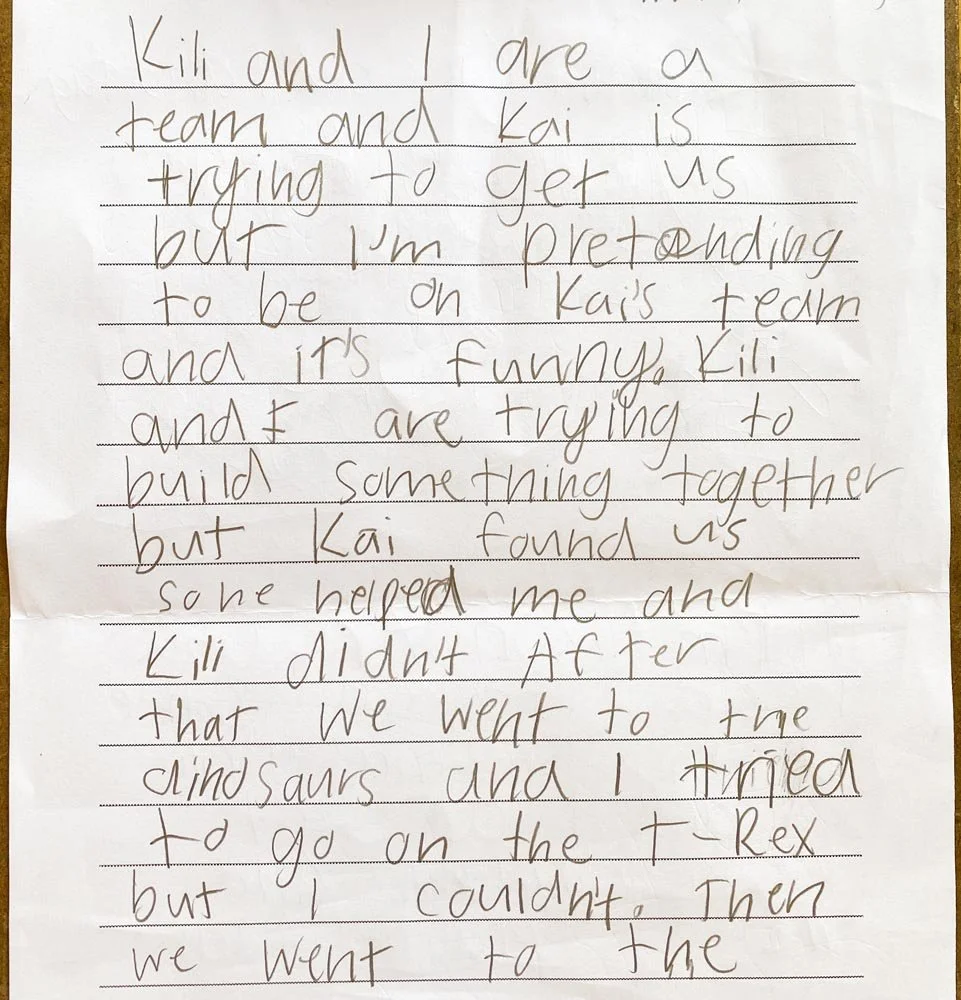 Kili and I are a
team and Kai is
trying to get us
but I'm pretending
to be on Kai's team
and it's funny. Kili
and I are trying to
build something together
but Kai found us
so he helped me and
Kili didn't After
that we went to the
dinosaurs and I tried
to go on the T-Rex
but I couldn't. Then
we went to the